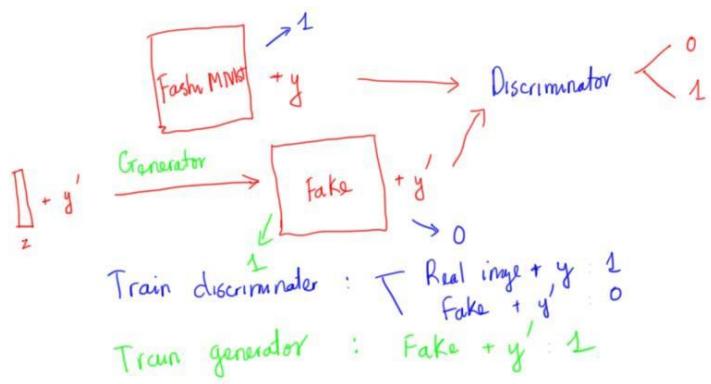 1
Fashn MNIST + y
Discriminator
0
1
Generator
z + y'
Fake + y'
1
0
Train discriminater : Real image + y : 1
Fake + y' : 0
Train generator : Fake + y' : 1